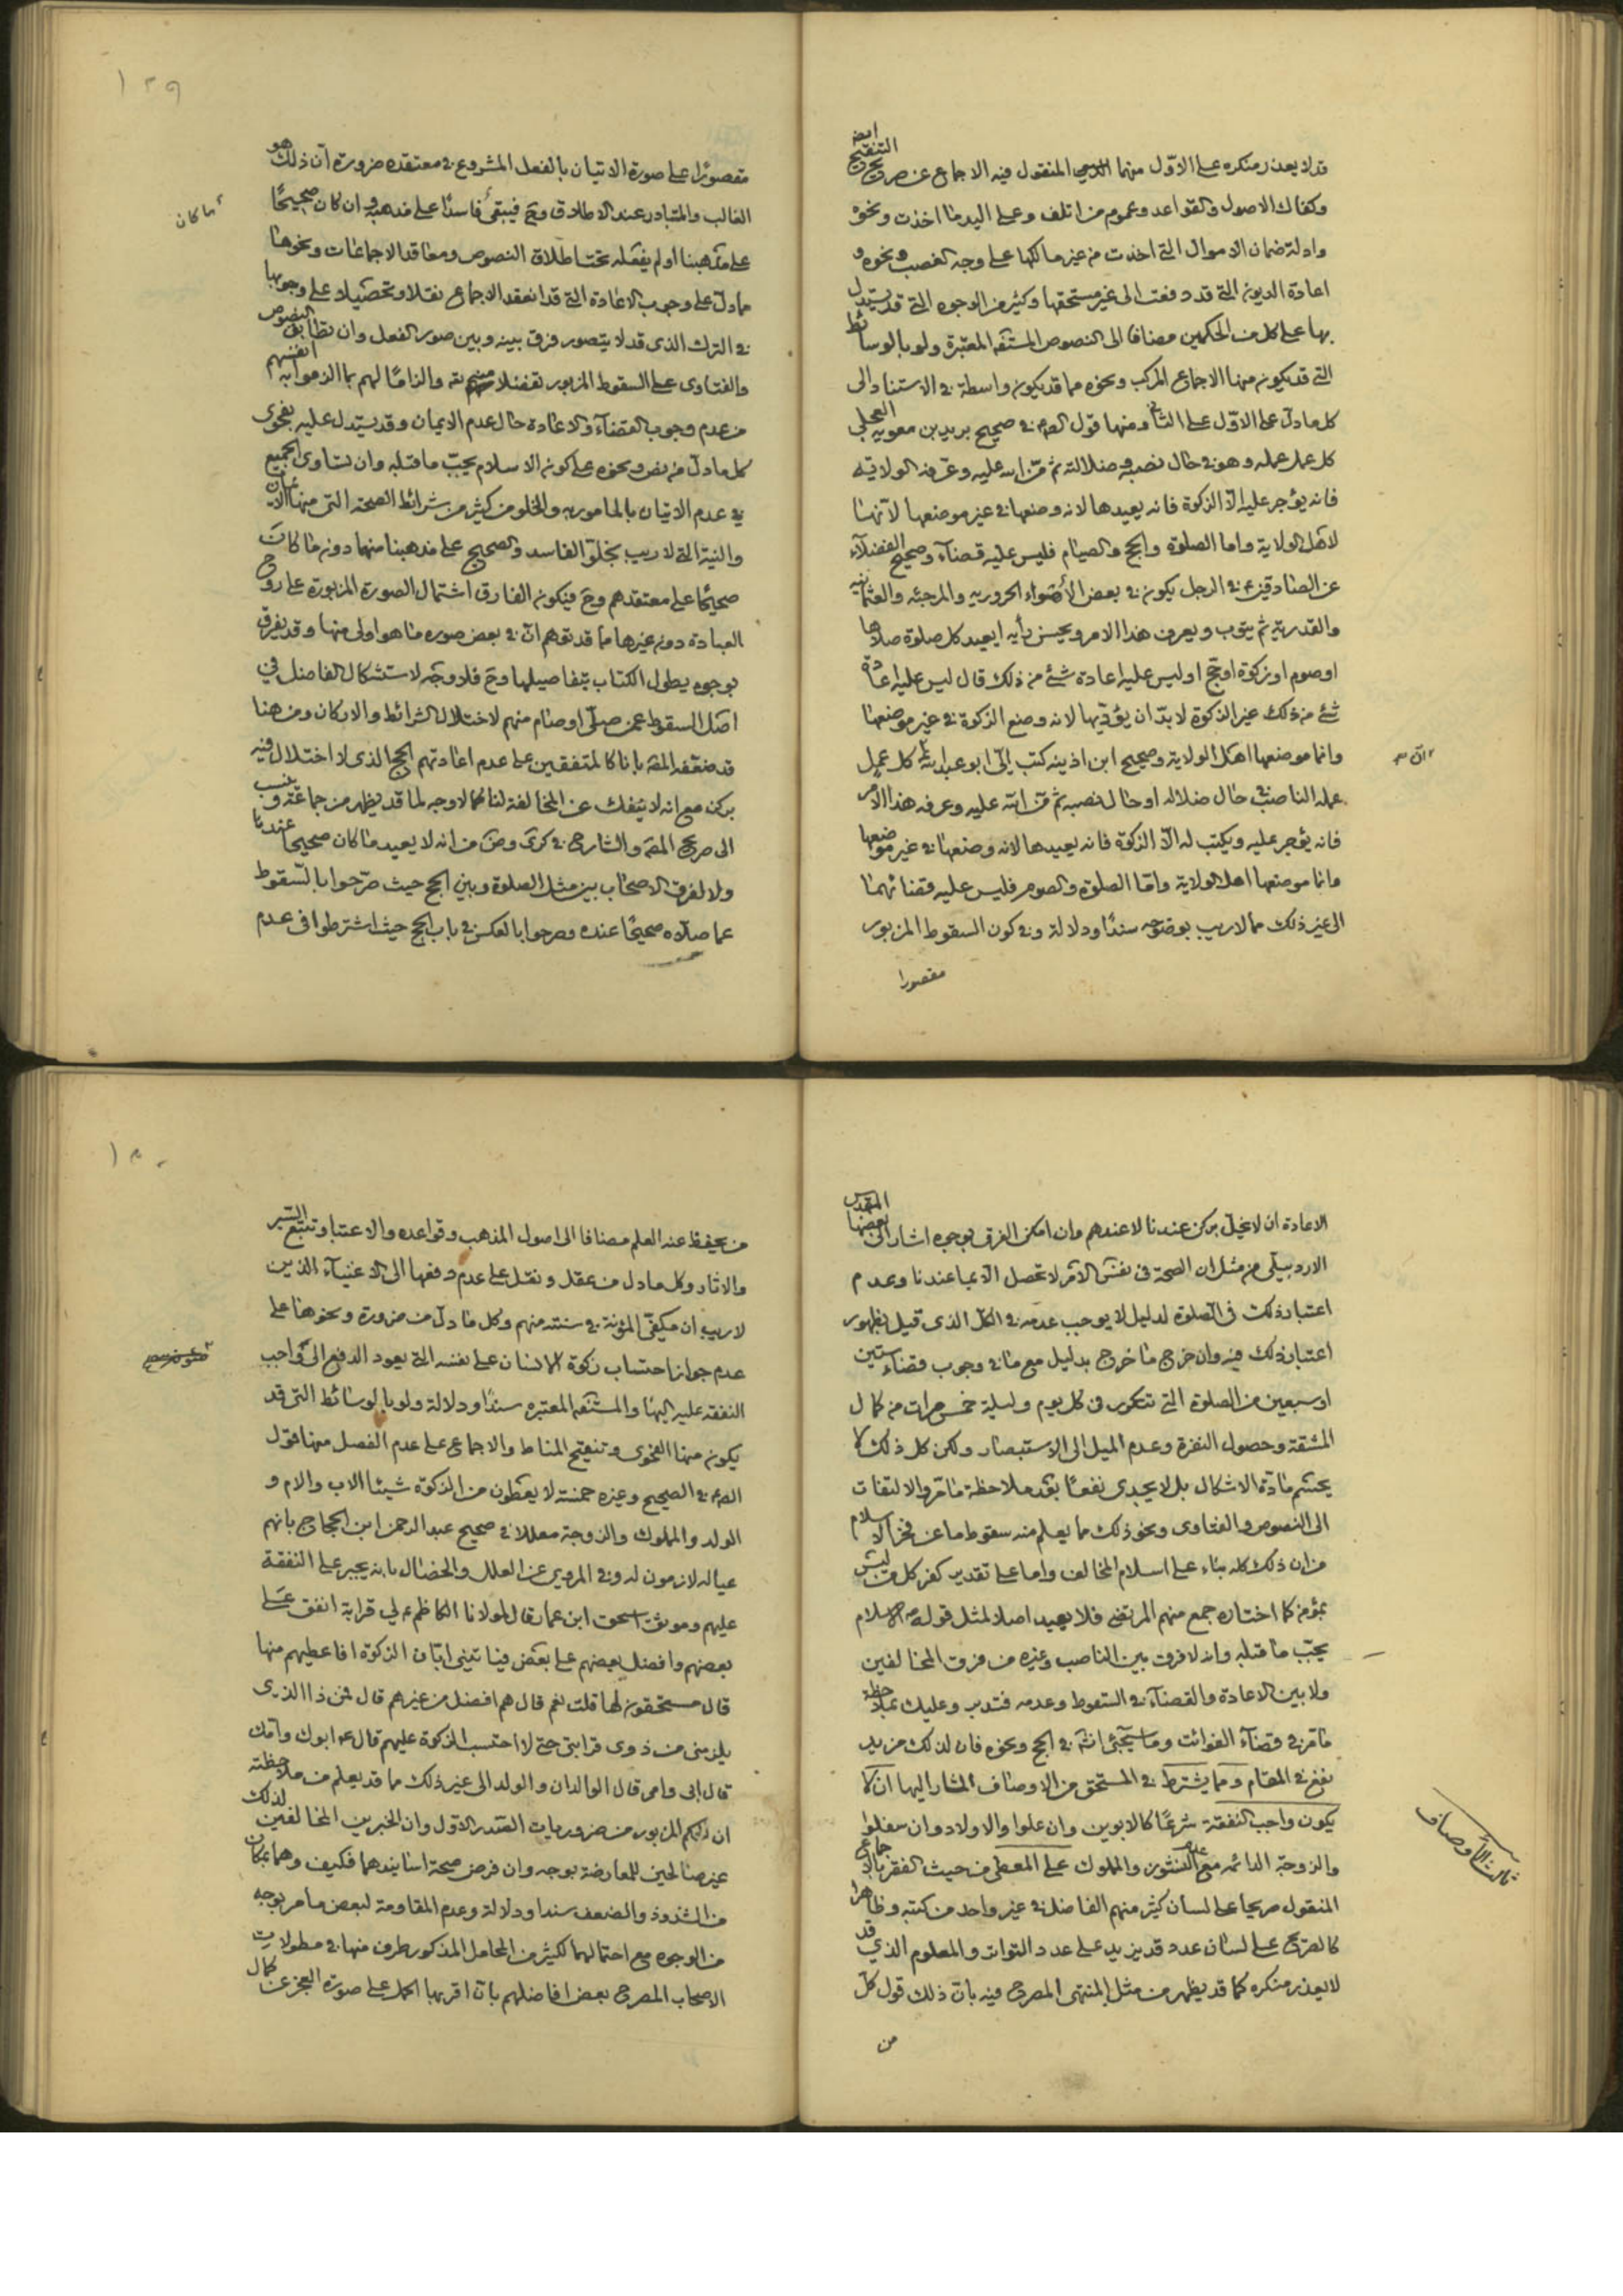 قد لا يعذر منكره على الاوّل منهما المنقول فيه الاجماع عن صريح التنقيح ايض
وكفاك الاصول والقواعد وعموم من اتلف وعلى اليد ما اخذت ونحوه
وادلة ضمان الاموال التي اخذت من غير مالكها على وجه الغصب ونحوه و
اعادة الديون التي قد دفعت الى غير مستحقها وكثير من الوجوه التي قد يستدل
بها على كل من الحكمين مضافا الى النصوص المستفيضة المعتبرة ولو بالوسائط
التي قد يكون منها الاجماع المركب ونحوه مما قد يكون واسطة في الاستناد الى
كل ما دلّ على الاوّل على الثاني ومنها قول الصادق في صحيح بريد بن معوية العجلي
كل عمل عمله وهو في حال نصبه وضلالته ثم منّ الله عليه وعرّفه الولاية
فانه يؤجر عليه الّا الزكوة فانه يعيدها لانه وضعها في غير موضعها لانّها
لاهل الولاية واما الصلوة والحج والصيام فليس عليه قضآء وصحيح الفضلآء
عن الصادقين ع في الرجل يكون في بعض الأهواء الحروريه والمرجئه والعثمانيه
والقدرية ثم يتوب ويعرف هذا الامر ويحسن رأيه ايعيد كل صلوة صلاها
او صوم او زكوة او حج او ليس عليه اعادة شئ من ذلك قال ليس عليه اعادة
شئ من ذلك غير الزكوة لا بدّ ان يؤدّيها لانه وضع الزكوة في غير موضعها
وانما موضعها اهل الولاية وصحيح ابن اذينه كتب الىّ ابو عبد الله ع كل عمل
ان
عمله الناصب في حال ضلاله او حال نصبه ثم منّ الله عليه وعرفه هذا الامر
فانه يؤجر عليه ويكتب له الّا الزكوة فانه يعيدها لانه وضعها في غير موضعها
وانما موضعها اهل الولاية وامّا الصلوة والصوم فليس عليه قضائهما
الى غير ذلك مما لا ريب بوضوحه سندًا ودلالة وفي كون السقوط المزبور
مقصورا
١٢٩
مقصورًا على صورة الاتيان بالفعل المشروع في معتقده ضرورة انّ ذلك هو
الغالب والمتبادر عند الاطلاق وح فيبقى فاسدًا على مذهبه وان كان صحيحًا
ما كان
على مذهبنا او لم يفعله تحت اطلاق النصوص ومعاقد الاجماعات ونحوها
مما دلّ على وجوب الاعادة التي قد انعقد الاجماع نقلا وتحصيلا على وجوبها
في الترك الذي قد لا يتصور فرق بينه وبين صور الفعل وان تطابق النصوص
والفتاوى على السقوط المزبور تفضلا منهم والزامًا لهم بما الزموا به انفسهم
من عدم وجوب القضآء والاعادة حال عدم الايمان وقد يستدل عليه بفحوى
كل ما دلّ من نص ونحوه على كون الاسلام يجبّ ما قبله وان تساوى الجميع
في عدم الاتيان بالمامور به والخلو من كثير من شرائط الصحة التي منها الايمان
والنية التي لا ريب بخلوّ الفاسد والصحيح على مذهبنا منهما دون ما كان
صحيحًا على معتقدهم وح فيكون الفارق اشتمال الصورة المزبورة على روح
العبادة دون غيرها مما قد توهم انّ في بعض صوره ما هو اولى منها وقد يفرق
بوجوه يطول الكتاب بتفاصيلها وح فلا وجه لاستشكال الفاضل في
اصل السقوط عمن صلّى او صام منهم لاختلال الشرائط والاركان ومن هنا
قد ضعّفه المقدس بانا كالمتفقين على عدم اعادتهم الحج الذي لا اختلال فيه
بركن مع انه لا ينفك عن المخالفة لنا كما لا وجه لما قد يظهر من جماعة ونسب
الى صريح المقدس والشارح في كرى وض من انه لا يعيد ما كان صحيحا عندنا
ولا لفرق الاصحاب بين مثل الصلوة وبين الحج حيث صرّحوا بالسقوط
عما صلّاه صحيحًا عنده وصرحوا بالعكس في باب الحج حيث اشترطوا في عدم
الاعادة ان لا يخلّ بركن عندنا لا عندهم وان امكن الفرق بوجوه اشار الى بعضها المقدس
الاردبيلي من مثل ان الصحة في نفس الامر لا تحصل الّا بما عندنا وعدم
اعتبار ذلك في الصلوة لدليل لا يوجب عدمه في الكل الذي قيل بظهور
اعتبار ذلك فيه وان خرج ما خرج بدليل مع ما في وجوب قضاء ستين
او سبعين من الصلوة التي تتكرر في كل يوم وليلة خمس مرات من كمال
المشقة وحصول النفرة وعدم الميل الى الاستبصار ولكن كل ذلك لا
يحسم مادّة الاشكال بل لا يجدى نفعًا بعد ملاحظة ما مرّ والالتفات
الى النصوص والفتاوى ونحو ذلك مما يعلم منه سقوط ما عن فخر الاسلام
من ان ذلك كله بناء على اسلام المخالف واما على تقدير كفر كل من ليس
بمؤمن كما اختاره جمع منهم المرتضى فلا يعيد اصلا لمثل قوله ص الاسلام
يجبّ ما قبله وانه لا فرق بين الناصب وغيره من فرق المخالفين
ولا بين الاعادة والقضآء في السقوط وعدمه فتدبر وعليك بملاحظة
ما مر في قضآء الفوائت وما سيجئ انشآء الله في الحج ونحوه فان لذلك مزيد
نفع في المقام ومما يشترط في المستحق من الاوصاف المشار اليها ان لا
يكون واجب النفقة شرعًا كالابوين وان علوا والاولاد وان سفلوا
ثالث الأوصاف
والزوجة الدائمه مع عدم النشوز والمملوك على المعطى من حيث الفقر بالاجماع
المنقول صريحا على لسان كثير منهم الفاضل في غير واحد من كتبه وظاهرا
كالصريح على لسان عدد قد يزيد على عدد التواتر والمعلوم الذي قد
لا يعذر منكره كما قد يظهر من مثل المنتهى المصرح فيه بانّ ذلك قول كلّ
من
١٣٠
من يحفظ عنه العلم مضافا الى اصول المذهب وقواعده والاعتبار وتتبع السير
والاثار وكل ما دل من عقل ونقل على عدم دفعها الى الاغنيآء الذين
لا ريب ان مكفىّ المؤنة في سنته منهم وكل ما دلّ من ضرورة ونحوها على
عدم جواز احتساب زكوة الانسان على نفسه التي يعود الدفع الى واجب
النفقة عليه اليها والمستفيضة المعتبره سندًا ودلالة ولو بالوسائط التي قد
يكون منها الفحوى وتنقيح المناط والاجماع على عدم الفصل منها قول
الصادق في الصحيح وغيره خمسة لا يعطون من الزكوة شيئا الاب والام و
الولد والمملوك والزوجة معللا في صحيح عبد الرحمن ابن الحجاج بانهم
عياله لازمون له وفي المروي عن العلل والخصال بانه يجبر على النفقة
عليهم وموثق اسحق ابن عمار قال لمولانا الكاظم ع لي قرابة انفق على
بعضهم وافضل بعضهم على بعض فياتيني ابّان الزكوة افاعطيهم منها
قال مستحقون لها قلت نعم قال هم افضل من غيرهم قال فمن ذا الذي
يلزمنى من ذوى قرابتي حتى لا احتسب الزكوة عليهم قال ع ابوك وامّك
قال ابى وامى قال الوالدان والولد الى غير ذلك مما قد يعلم من ملاحظته
ان الحكم المزبور من ضروريات القدر الاوّل وان الخبرين المخالفين لذلك
غير صالحين للمعارضة بوجه وان فرض صحة اسانيدهما فكيف وهما بمكان
من الشذوذ والضعف سندا ودلالة وعدم المقاومة لبعض ما مر بوجه
من الوجوه مع احتمالهما لكثير من المحامل المذكور طرف منها في مطولات
الاصحاب المصرح بعض افاضلهم بانّ اقربها الحمل على صورة العجز عن كمال